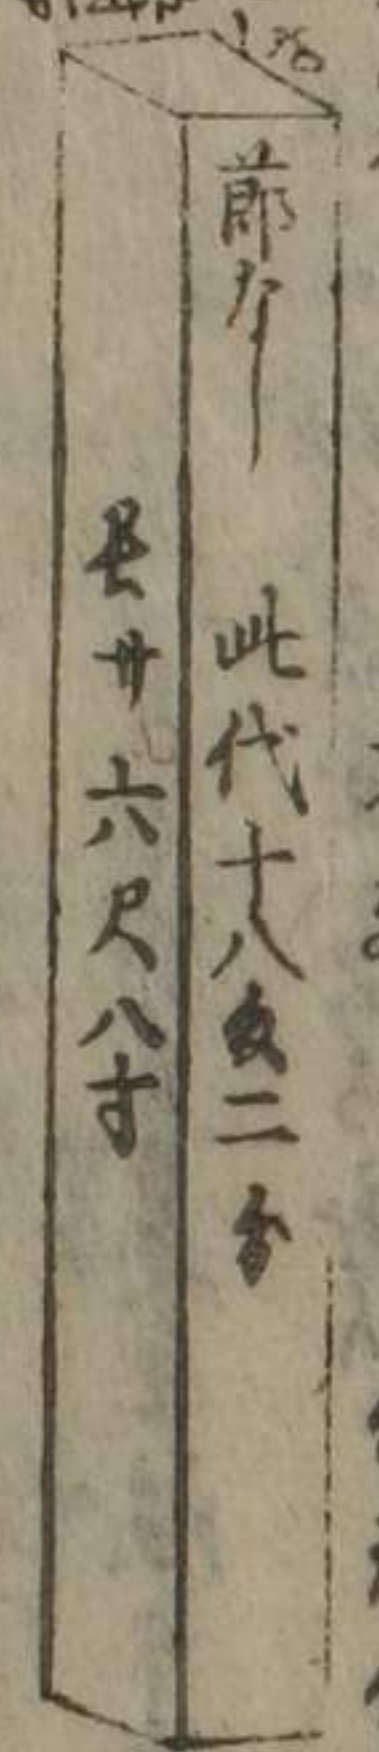 節なし
此代十八匁二分
長廾六尺八寸